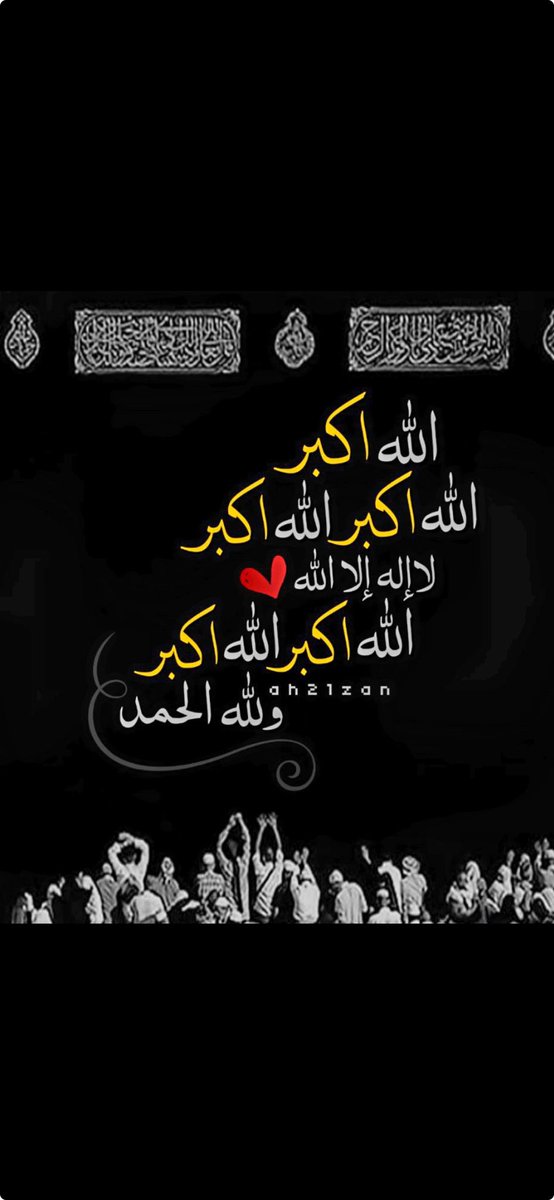 الله اكبر
الله اكبر الله اكبر
لا إله إلا الله
الله اكبر الله اكبر
ah21zan
ولله الحمد